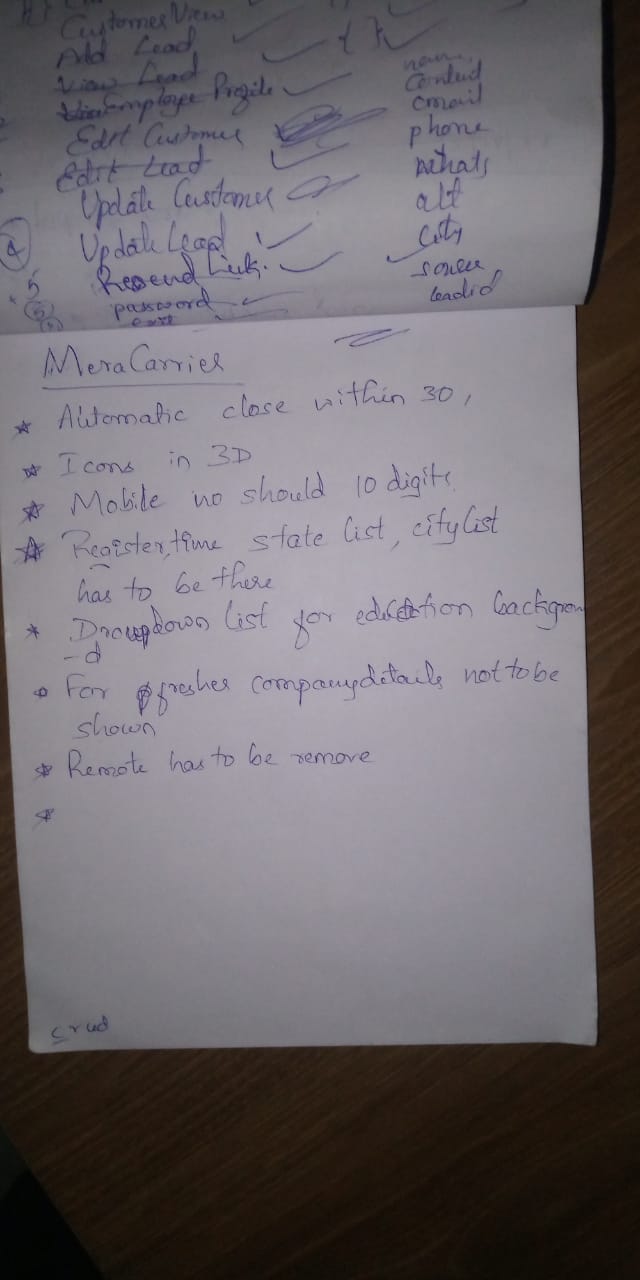 Customer View
Add Lead
View Lead
Employee Profile
Edit Customer
Edit Lead
Update Customer
4 Update Lead
5 Resend Link.
password
name
Contact
email
phone
whats
alt
City
source
leadid
MeraCarrier
Automatic close within 30,
Icons in 3D
Mobile no should 10 digits
Register, time state list, city list
has to be there
Droupdown list for eduction backgroun
-d
For fresher company details not to be
shown
Remote has to be remove
crud